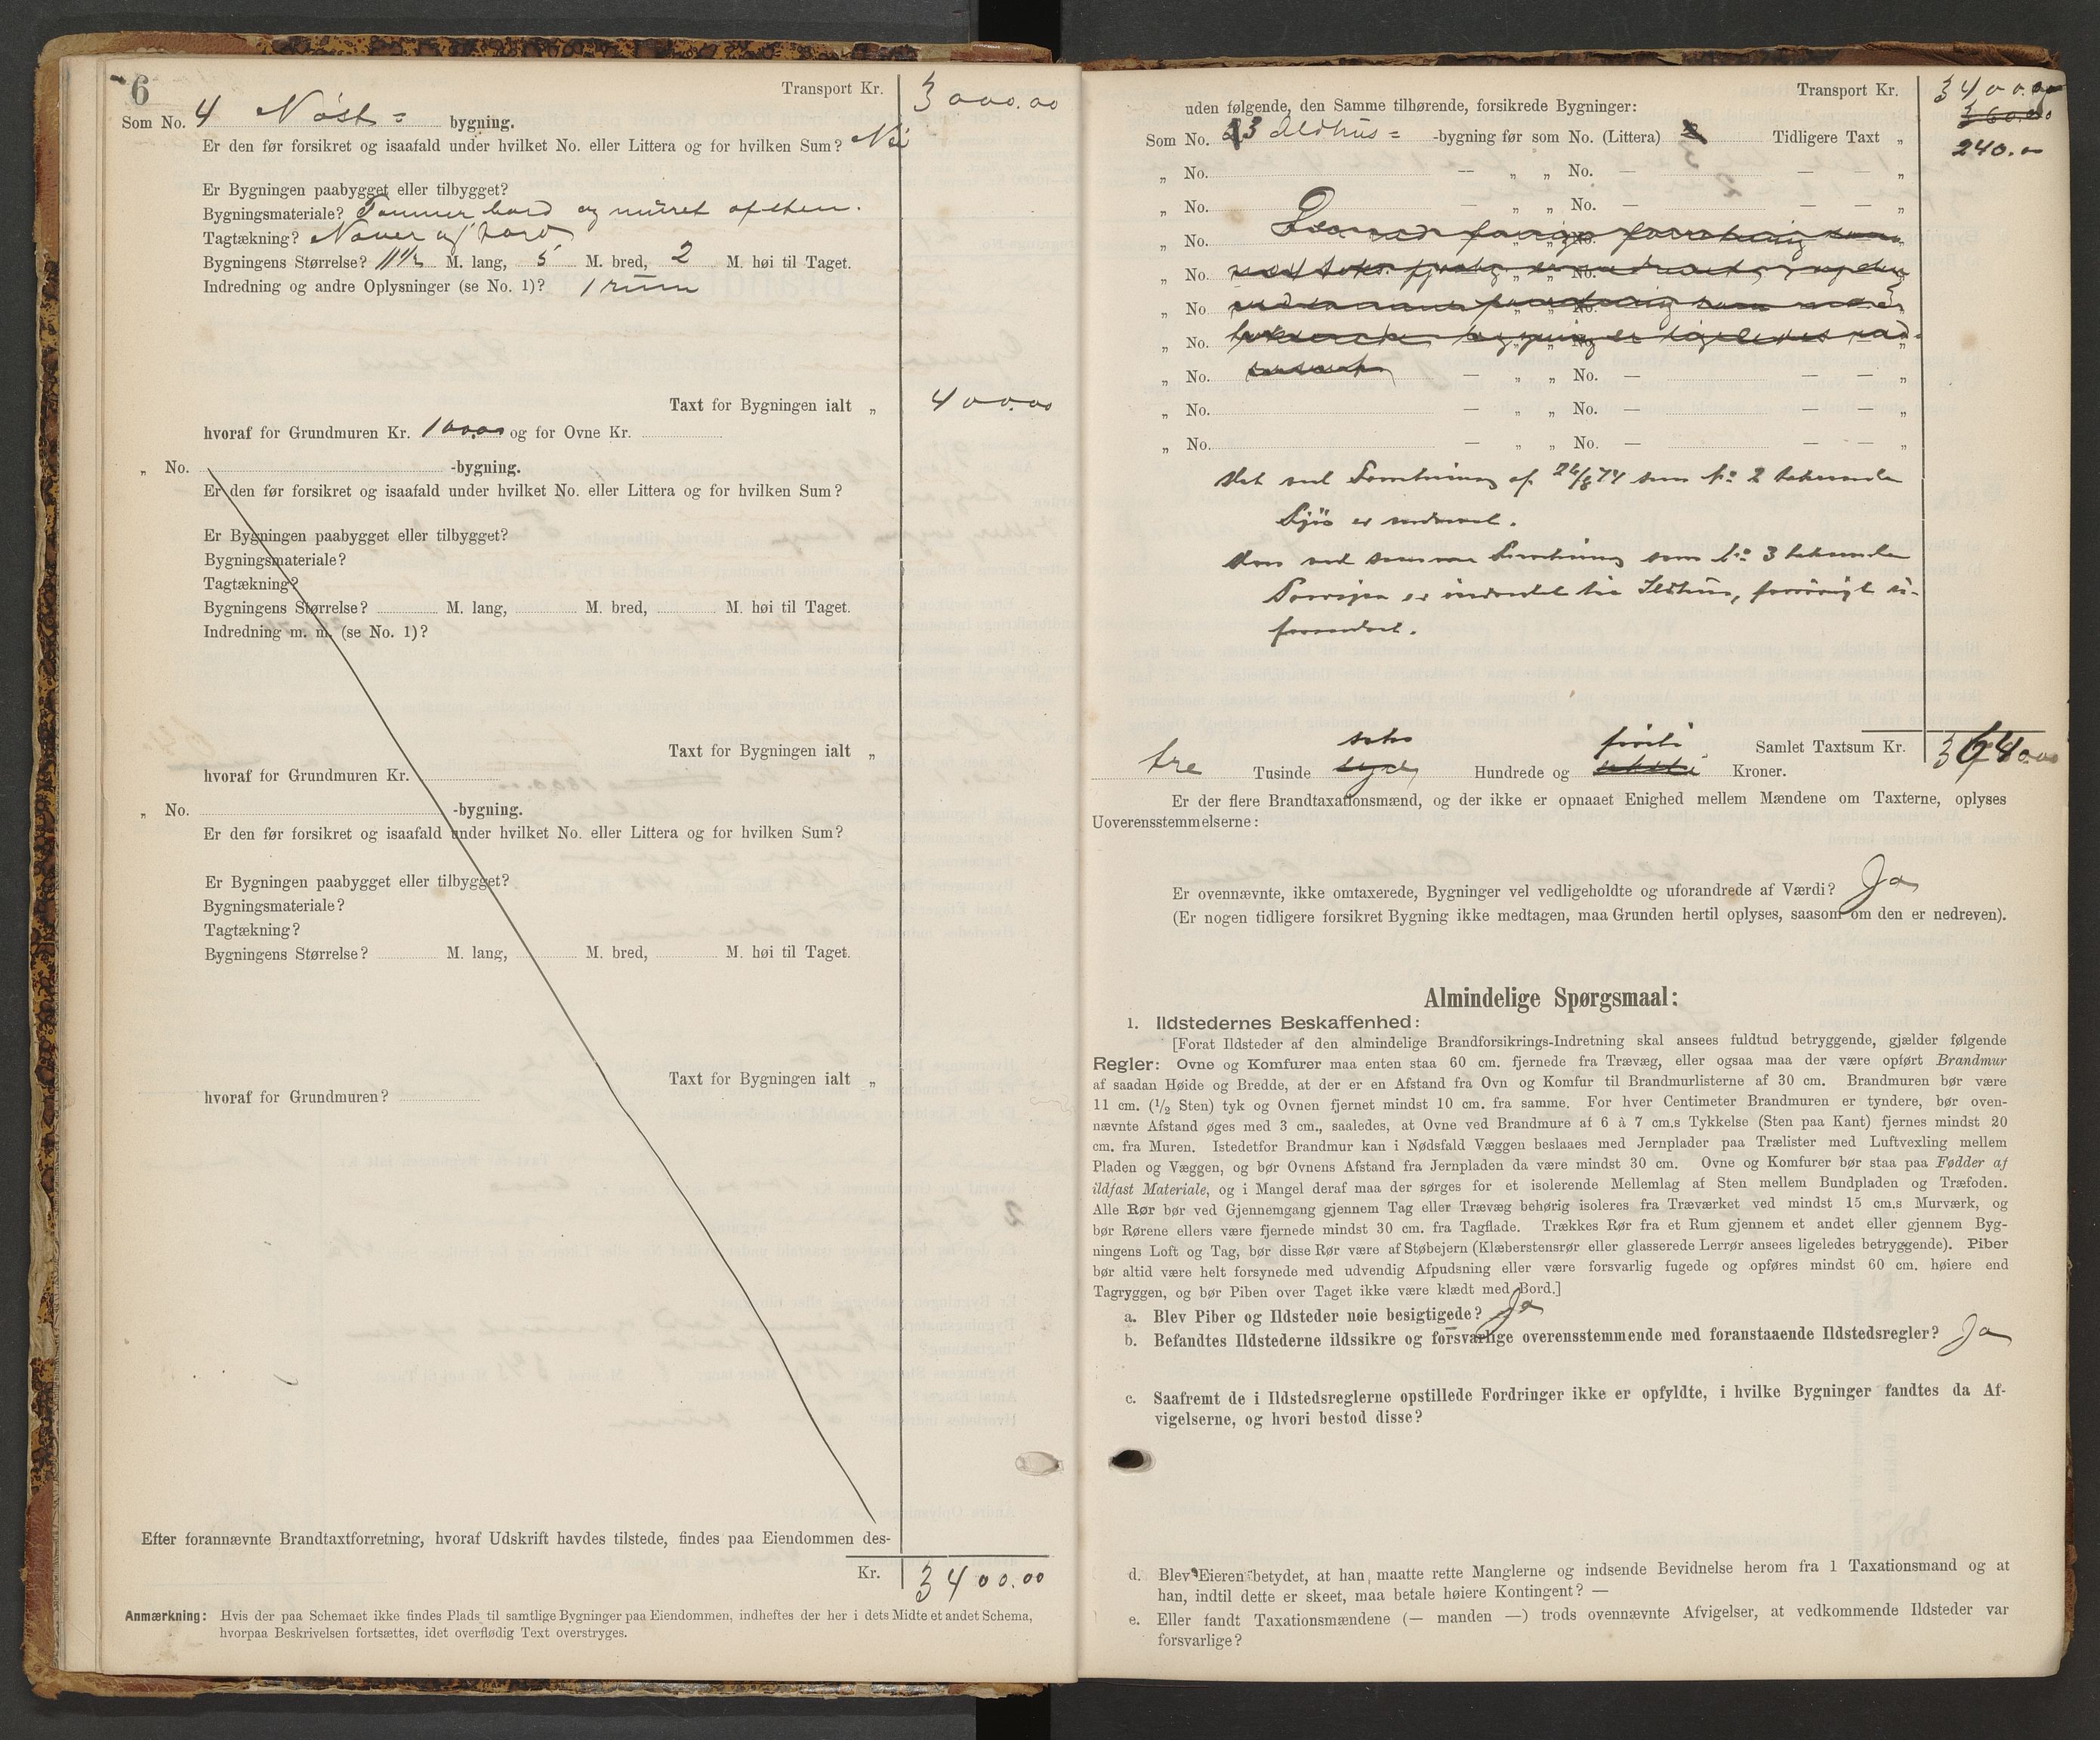 6
Transport Kr. 3000.00
Som No. 4 Nöst= bygning.
Er den før forsikret og isaafald under hvilket No. eller Littera og for hvilken Sum? Nei
Er Bygningen paabygget eller tilbygget?
Bygningsmateriale? Tømmer bord og muret afsten.
Tagtækning? Never og bord
Bygningens Størrelse? 11½ M. lang, 5 M. bred, 2 M. høi til Taget.
Indredning og andre Oplysninger (se No. 1)? 1 rum
Taxt for Bygningen ialt „ 400.00
hvoraf for Grundmuren Kr. 100.00 og for Ovne Kr.
„ No. -bygning.
Er den før forsikret og isaafald under hvilket No. eller Littera og for hvilken Sum?
Er Bygningen paabygget eller tilbygget?
Bygningsmateriale?
Tagtækning?
Bygningens Størrelse? M. lang, M. bred, M. høi til Taget.
Indredning m. m. (se No. 1)?
Taxt for Bygningen ialt „
hvoraf for Grundmuren Kr.
„ No. -bygning.
Er den før forsikret og isaafald under hvilket No. eller Littera og for hvilken Sum?
Er Bygningen paabygget eller tilbygget?
Bygningsmateriale?
Tagtækning?
Bygningens Størrelse? M. lang, M. bred, M. høi til Taget.
Taxt for Bygningen ialt „
hvoraf for Grundmuren?
Efter forannævnte Brandtaxtforretning, hvoraf Udskrift havdes tilstede, findes paa Eiendommen des-
Kr. 3400.00
Anmærkning: Hvis der paa Schemaet ikke findes Plads til samtlige Bygninger paa Eiendommen, indheftes der her i dets Midte et andet Schema,
hvorpaa Beskrivelsen fortsættes, idet overflødig Text overstryges.
Transport Kr. 3400.00
uden følgende, den Samme tilhørende, forsikrede Bygninger: 360.00
Som No. 3 Ildhus= -bygning før som No. (Littera) 3 Tidligere Taxt „ 240.00
„ No. — „ „ No. — — — „
„ No. — „ „ No. — — — „
„ No. „ „ No. „
„ No. „ „ No. „
„ No. „ „ No. „
„ No. „ „ No. „
„ No. — „ „ No. — — — „
„ No. — „ „ No. — — — „
„ No. — „ „ No. — — — „
Det ved Forretning af 24/8 74 som No 2 takserede
Sjø er nedrevet.
Den ved samme Forretning som No 3 takserede
er indredet til Ildhus, forövrigt u-
forandret.
Samlet Taxtsum Kr. 3640.00
tre Tusinde seks Hundrede og förti Kroner.
Er der flere Brandtaxationsmænd, og der ikke er opnaaet Enighed mellem Mændene om Taxterne, oplyses
Uoverensstemmelserne:
Er ovennævnte, ikke omtaxerede, Bygninger vel vedligeholdte og uforandrede af Værdi? Ja
(Er nogen tidligere forsikret Bygning ikke medtagen, maa Grunden hertil oplyses, saasom om den er nedreven).
Almindelige Spørgsmaal:
1. Ildstedernes Beskaffenhed:
[Forat Ildsteder af den almindelige Brandforsikrings-Indretning skal ansees fuldtud betryggende, gjælder følgende
Regler: Ovne og Komfurer maa enten staa 60 cm. fjernede fra Trævæg, eller ogsaa maa der være opført Brandmur
af saadan Høide og Bredde, at der er en Afstand fra Ovn og Komfur til Brandmurlisterne af 30 cm. Brandmuren bør være
11 cm. (1/2 Sten) tyk og Ovnen fjernet mindst 10 cm. fra samme. For hver Centimeter Brandmuren er tyndere, bør oven-
nævnte Afstand øges med 3 cm., saaledes, at Ovne ved Brandmure af 6 à 7 cm.s Tykkelse (Sten paa Kant) fjernes mindst 20
cm. fra Muren. Istedetfor Brandmur kan i Nødsfald Væggen beslaaes med Jernplader paa Trælister med Luftvexling mellem
Pladen og Væggen, og bør Ovnens Afstand fra Jernpladen da være mindst 30 cm. Ovne og Komfurer bør staa paa Fødder af
ildfast Materiale, og i Mangel deraf maa der sørges for et isolerende Mellemlag af Sten mellem Bundpladen og Træfoden.
Alle Rør bør ved Gjennemgang gjennem Tag eller Trævæg behørig isoleres fra Træværket ved mindst 15 cm.s Murværk, og
bør Rørene ellers være fjernede mindst 30 cm. fra Tagflade. Trækkes Rør fra et Rum gjennem et andet eller gjennem Byg-
ningens Loft og Tag, bør disse Rør være af Støbejern (Klæberstensrør eller glasserede Lerrør ansees ligeledes betryggende). Piber
bør altid være helt forsynede med udvendig Afpudsning eller være forsvarlig fugede og opføres mindst 60 cm. høiere end
Tagryggen, og bør Piben over Taget ikke være klædt med Bord.]
a. Blev Piber og Ildsteder nøie besigtigede? Ja
b. Befandtes Ildstederne ildssikre og forsvarlige overensstemmende med foranstaaende Ildstedsregler? Ja
c. Saafremt de i Ildstedsreglerne opstillede Fordringer ikke er opfyldte, i hvilke Bygninger fandtes da Af-
vigelserne, og hvori bestod disse?
d. Blev Eieren betydet, at han maatte rette Manglerne og indsende Bevidnelse herom fra 1 Taxationsmand og at
han, indtil dette er skeet, maa betale høiere Kontingent? —
e. Eller fandt Taxationsmændene (— manden —) trods ovennævnte Afvigelser, at vedkommende Ildsteder var
forsvarlige?